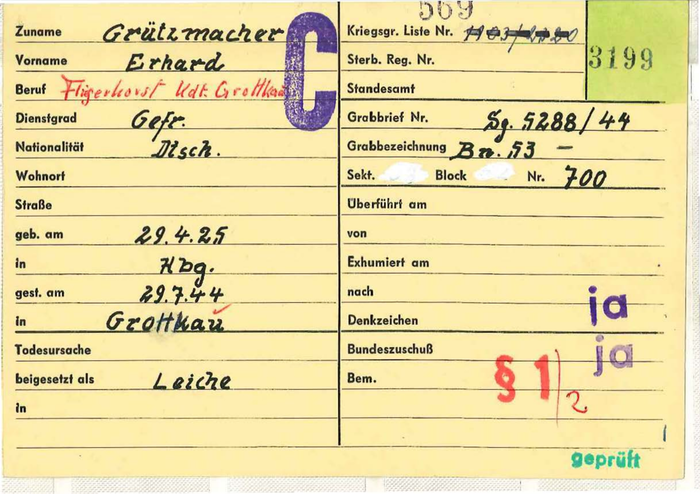 569
Zuname Grützmacher
Vorname Erhard
Beruf Fligerhorst Kdt. Grottkau
Dienstgrad Gefr.
Nationalität Dtsch.
Wohnort
Straße
geb. am 29.4.25
in Hbg.
gest. am 29.7.44
in Grottkau
Todesursache
beigesetzt als Leiche
in
C
Kriegsgr. Liste Nr.
3199
Sterb. Reg. Nr.
Standesamt
Grabbrief Nr. Sg. 5288/44
Grabbezeichnung Bn. 53 –
Sekt. Block Nr. 700
Überführt am
von
Exhumiert am
nach
Denkzeichen ja
Bundeszuschuß ja
Bem. § 1/2
geprüft